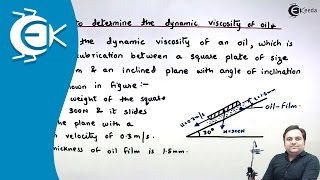 to determine the dynamic viscosity of oil
the dynamic viscosity of an oil, which is
lubrication between a square plate of size
m & an inclined plane with angle of inclination
shown in figure:-
weight of the square
300N & it slides
plane with a
velocity of 0.3m/s.
thickness of oil film is 1.5mm.
oil-film
30°
W=300N
Ekeeda